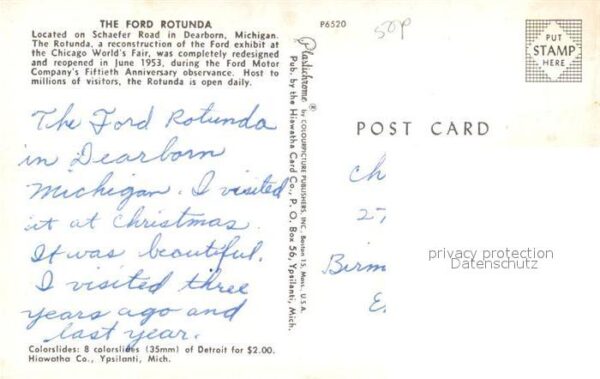 THE FORD ROTUNDA
Located on Schaefer Road in Dearborn, Michigan.
The Rotunda, a reconstruction of the Ford exhibit at
the Chicago World's Fair, was completely redesigned
and reopened in June 1953, during the Ford Motor
Company's Fiftieth Anniversary observance. Host to
millions of visitors, the Rotunda is open daily.
The Ford Rotunda
in Dearborn
Michigan. I visited
it at Christmas
It was beautiful.
I visited three
years ago and
last year.
Colorslides: 8 colorslides (35mm) of Detroit for $2.00.
Hiawatha Co., Ypsilanti, Mich.
Plastichrome ® by COLOURPICTURE PUBLISHERS, INC. Boston 15, Mass. U.S.A.
Pub. by the Hiawatha Card Co., P. O. Box 56, Ypsilanti, Mich.
P6520
50p
PUT
STAMP
HERE
POST CARD
Ch
27
Birm
E.
privacy protection
Datenschutz